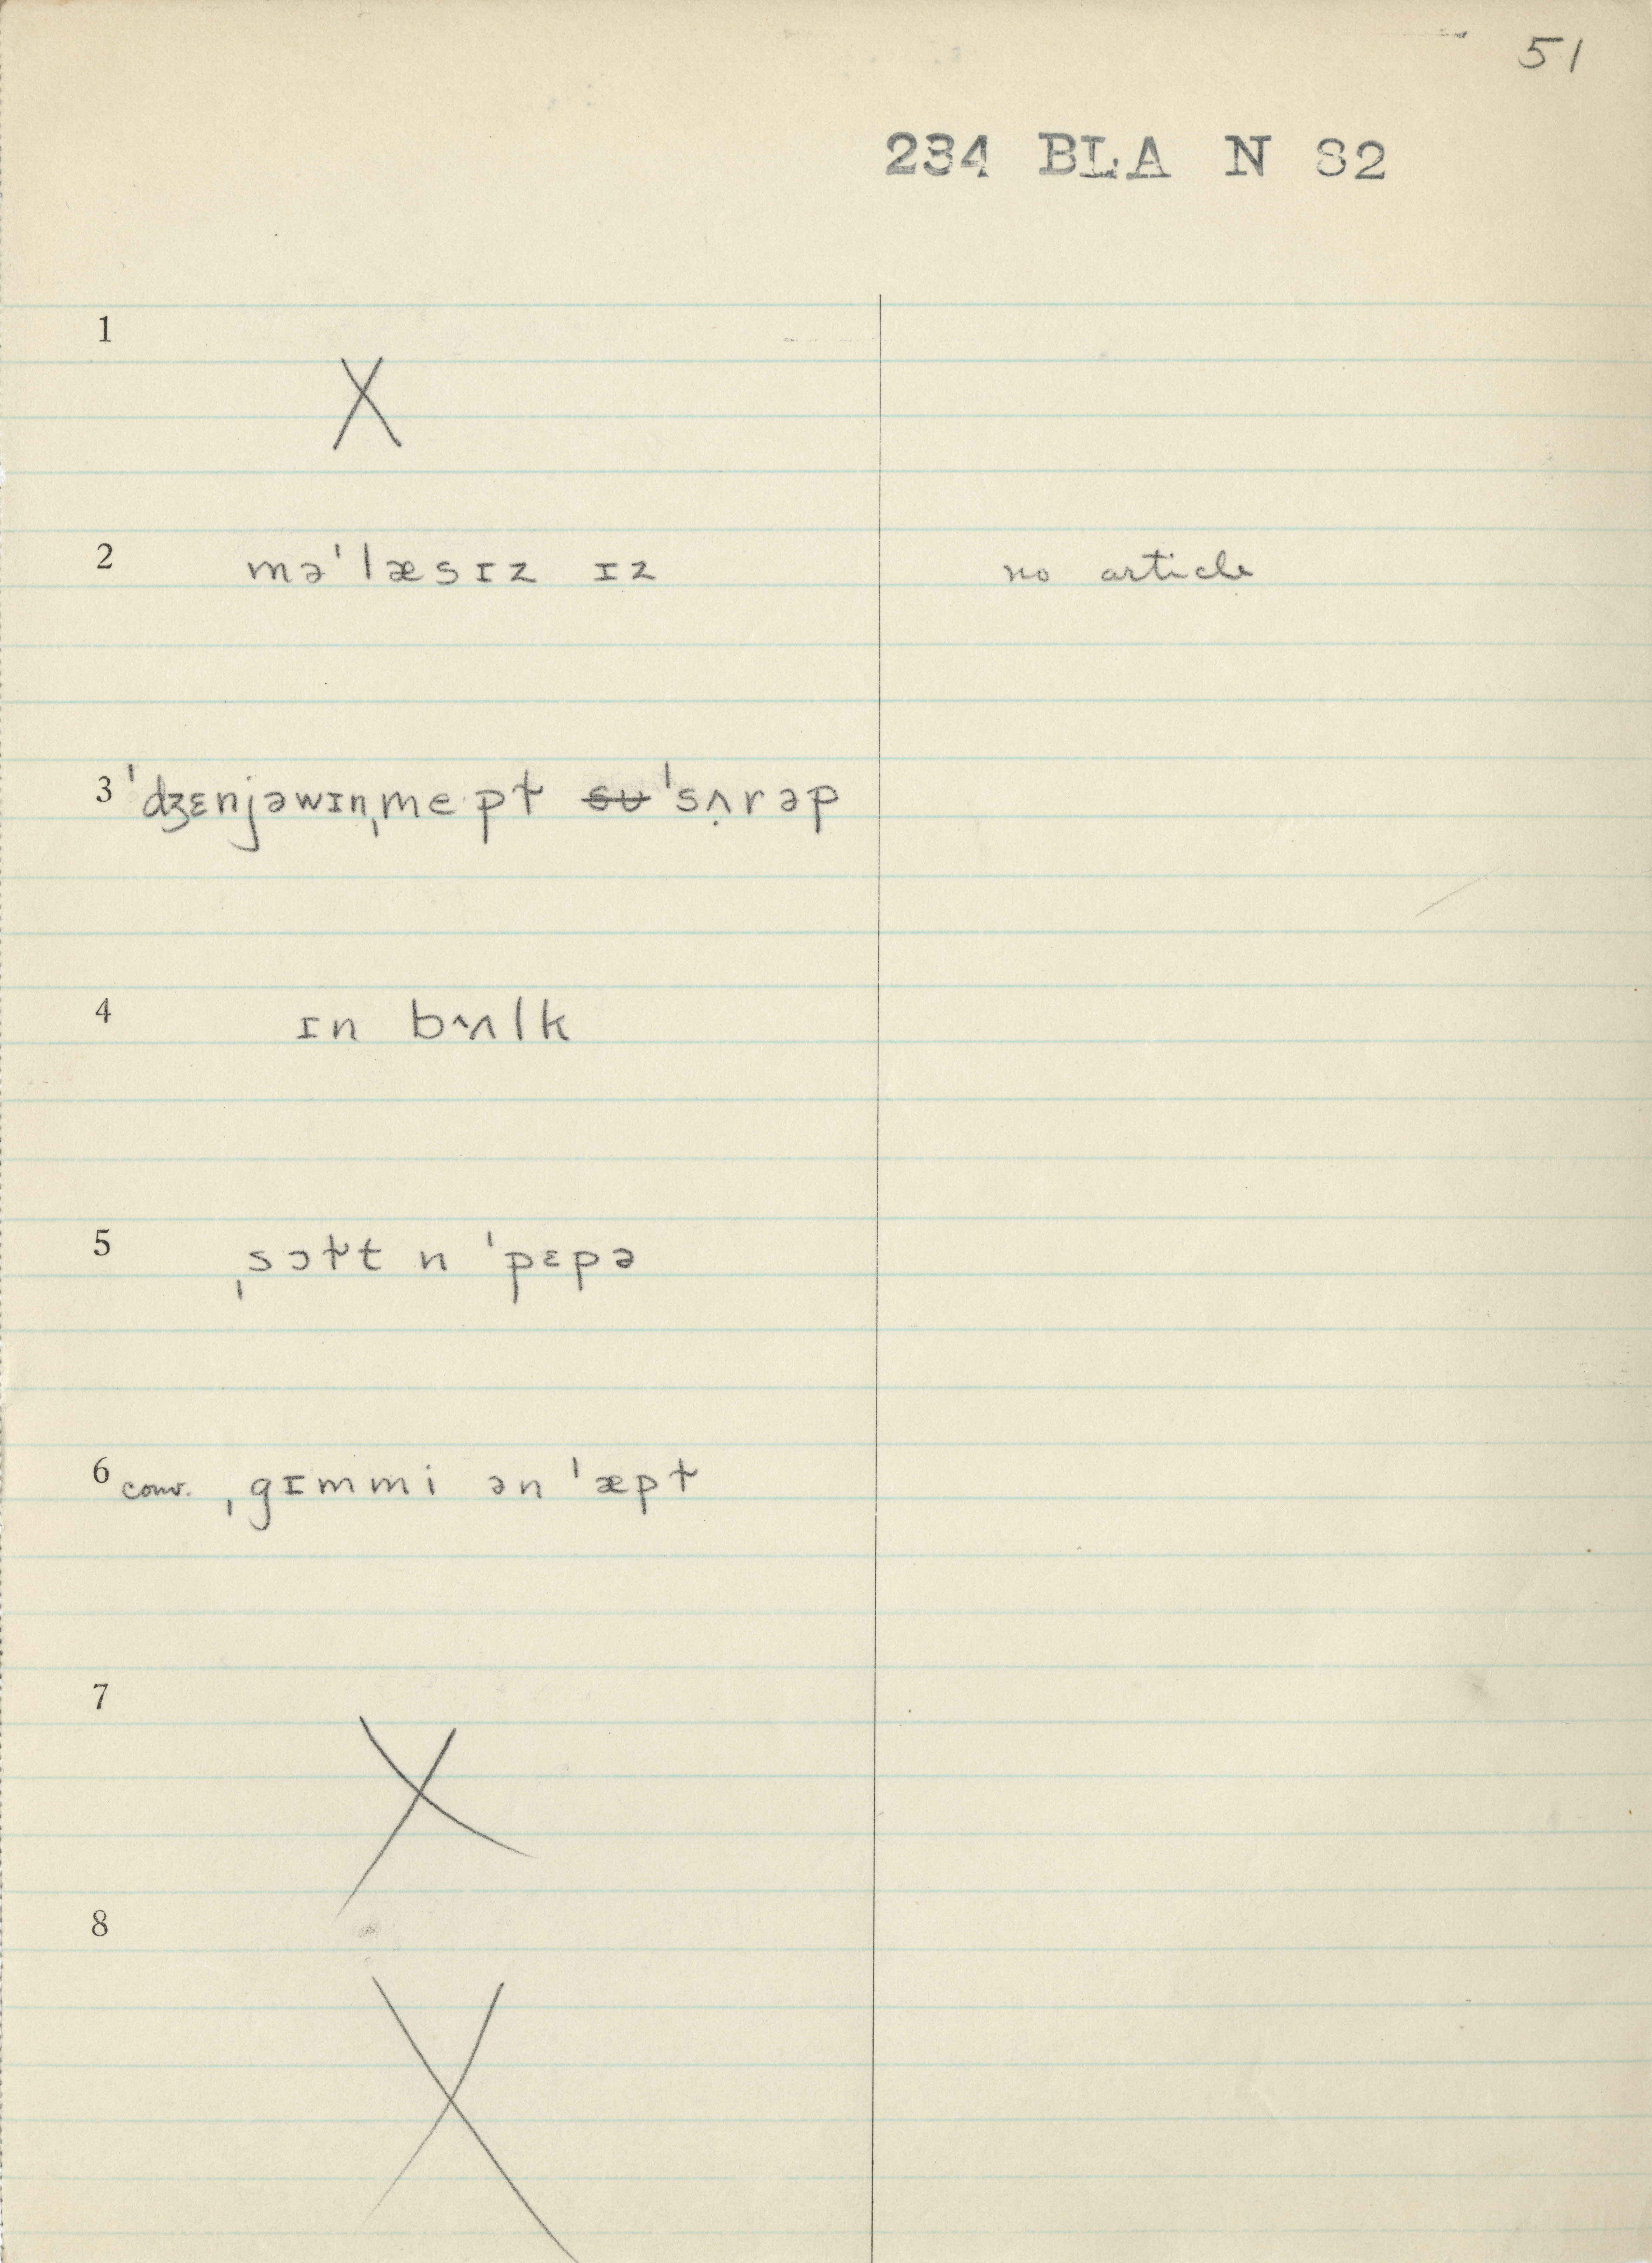 51
234 BLA N 82
1 X
2 mə'læsɪz ɪz no article
3 'dʒɛnjəwɪnˌmept ̶s̶ʊ 'sʌ̣rəp
4 ɪn bʌlk
5 ˌsɔɫt n 'pɛpə
6 conv. ˌgɪmmi ən 'æpɫ
7 X
8 X